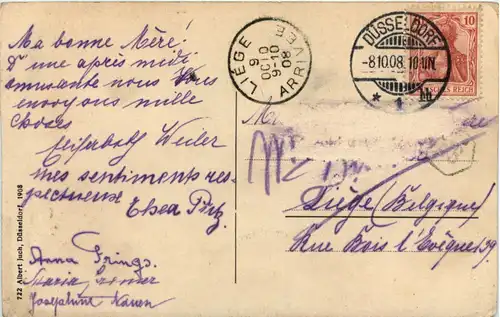 Ma bonne Mère!
D'une après midi
amusante nous Vous
envoyons mille
choses
Elisabeth Weiler
mes sentiments res-
pectueux
Anna Frings.
Maria
Josephine
722 Albert Juch, Düsseldorf, 1908
LIÉGE
9
OC-10
9-10
08
ARRIVEE
DÜSSELDORF
-8.10.08.
* 1
10
Liège (Belgique)
Rue Bois l'Evêque 39.